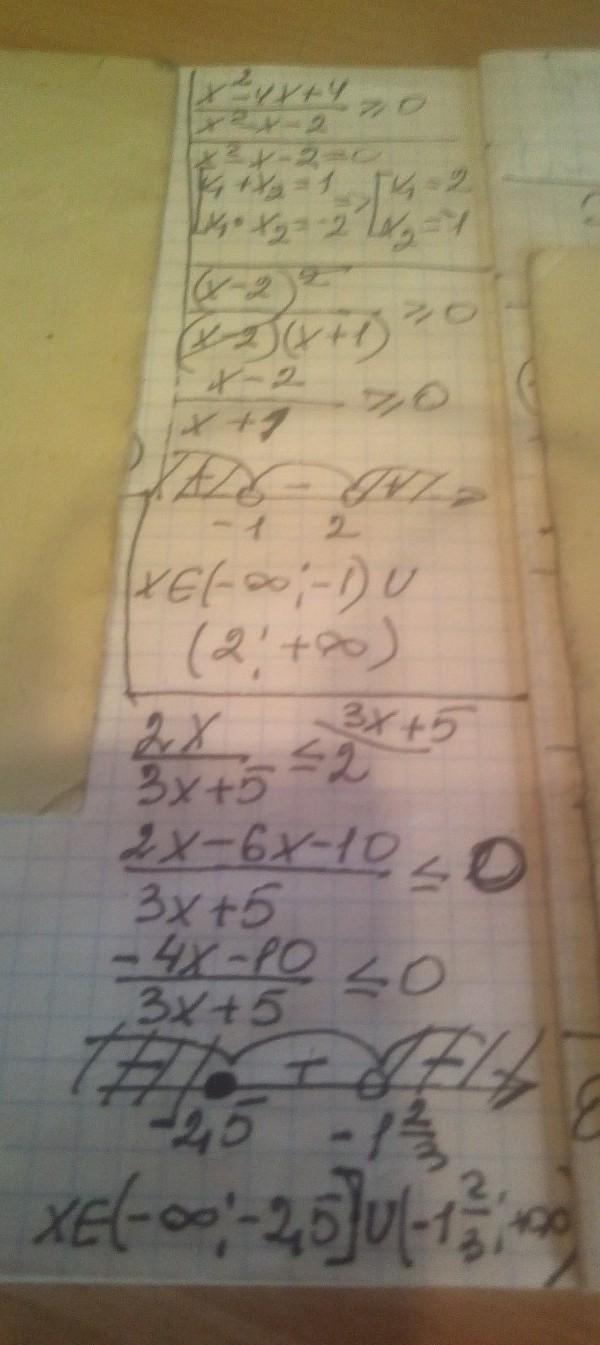 x²-4x+4
x²-x-2 ≥ 0
x²-x-2=0
x₁+x₂=1 => x₁=2
x₁·x₂=-2 x₂=-1
(x-2)²
(x-2)(x+1) ≥ 0
x-2
x+1 ≥ 0
+ - +
-1 2
x∈(-∞;-1)∪
(2;+∞)
2x 3x+5
3x+5 ≤ 2
2x-6x-10
3x+5 ≤ 0
-4x-10
3x+5 ≤ 0
- + -
-2,5 -1 2/3
x∈(-∞;-2,5]∪(-1 2/3;+∞)